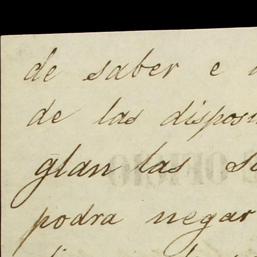 de saber e
de las dispos
glan las
podra negar